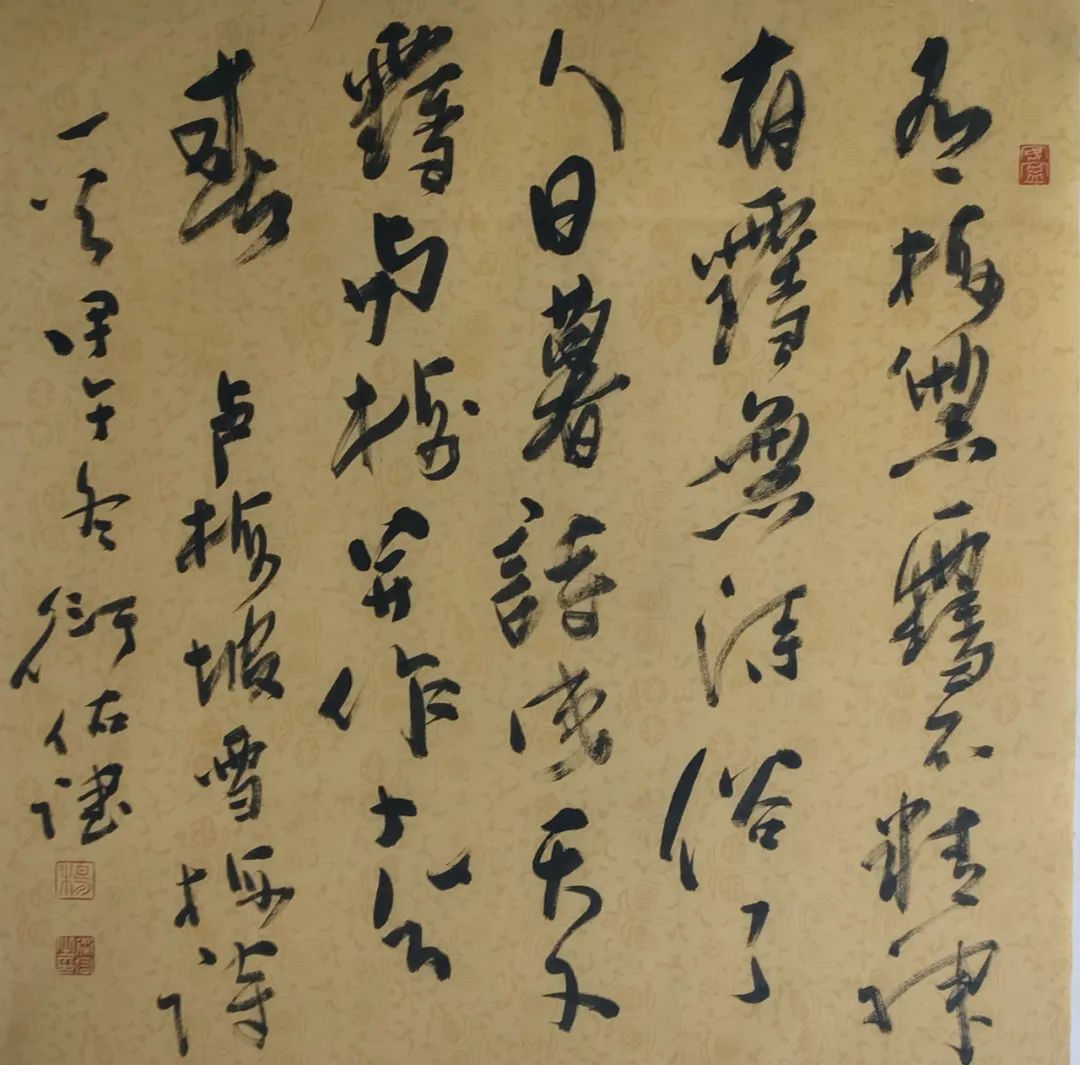 有梅無雪不精神
有雪無詩俗了
人日暮詩成天又
雪與梅并作十分
春 卢梅坡雪梅詩
一首 甲午冬 佑
楊